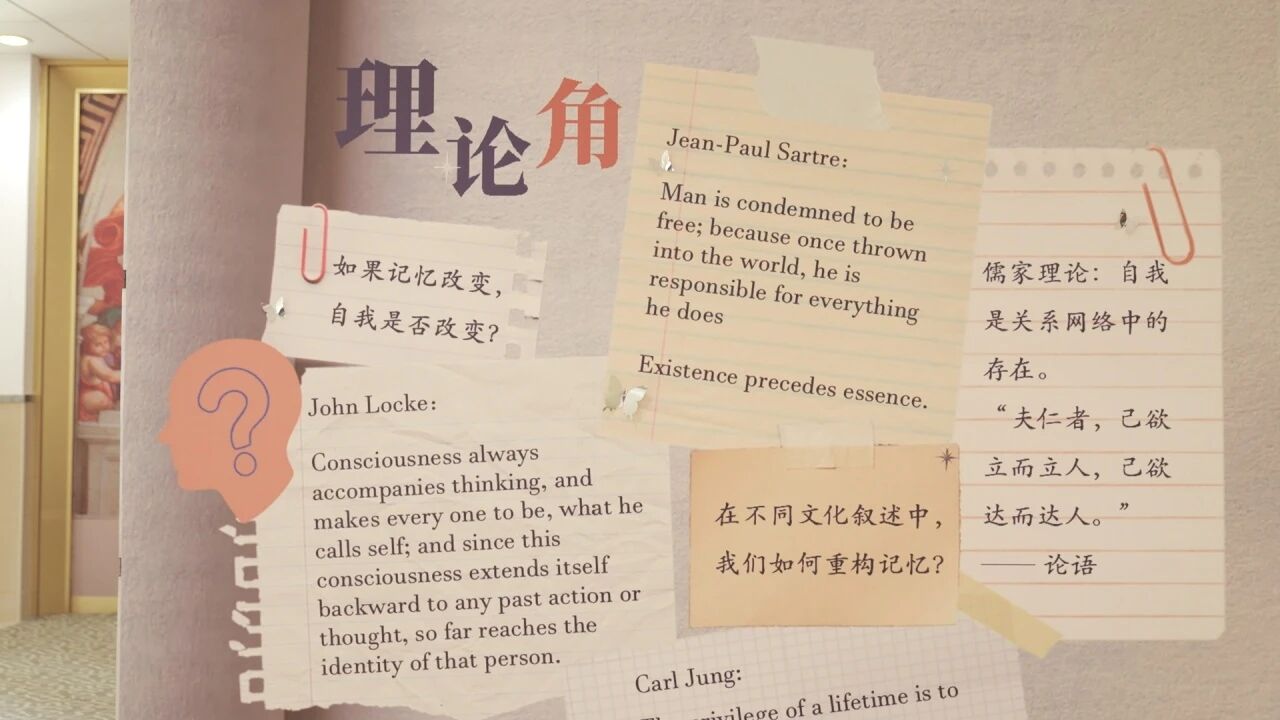 理论角
如果记忆改变，
自我是否改变？
Jean-Paul Sartre:
Man is condemned to be
free; because once thrown
into the world, he is
responsible for everything
he does
Existence precedes essence.
儒家理论：自我
是关系网络中的
存在。
“夫仁者，己欲
立而立人，己欲
达而达人。”
—— 论语
John Locke:
Consciousness always
accompanies thinking, and
makes every one to be, what he
calls self; and since this
consciousness extends itself
backward to any past action or
thought, so far reaches the
identity of that person.
在不同文化叙述中，
我们如何重构记忆？
Carl Jung:
privilege of a lifetime is to